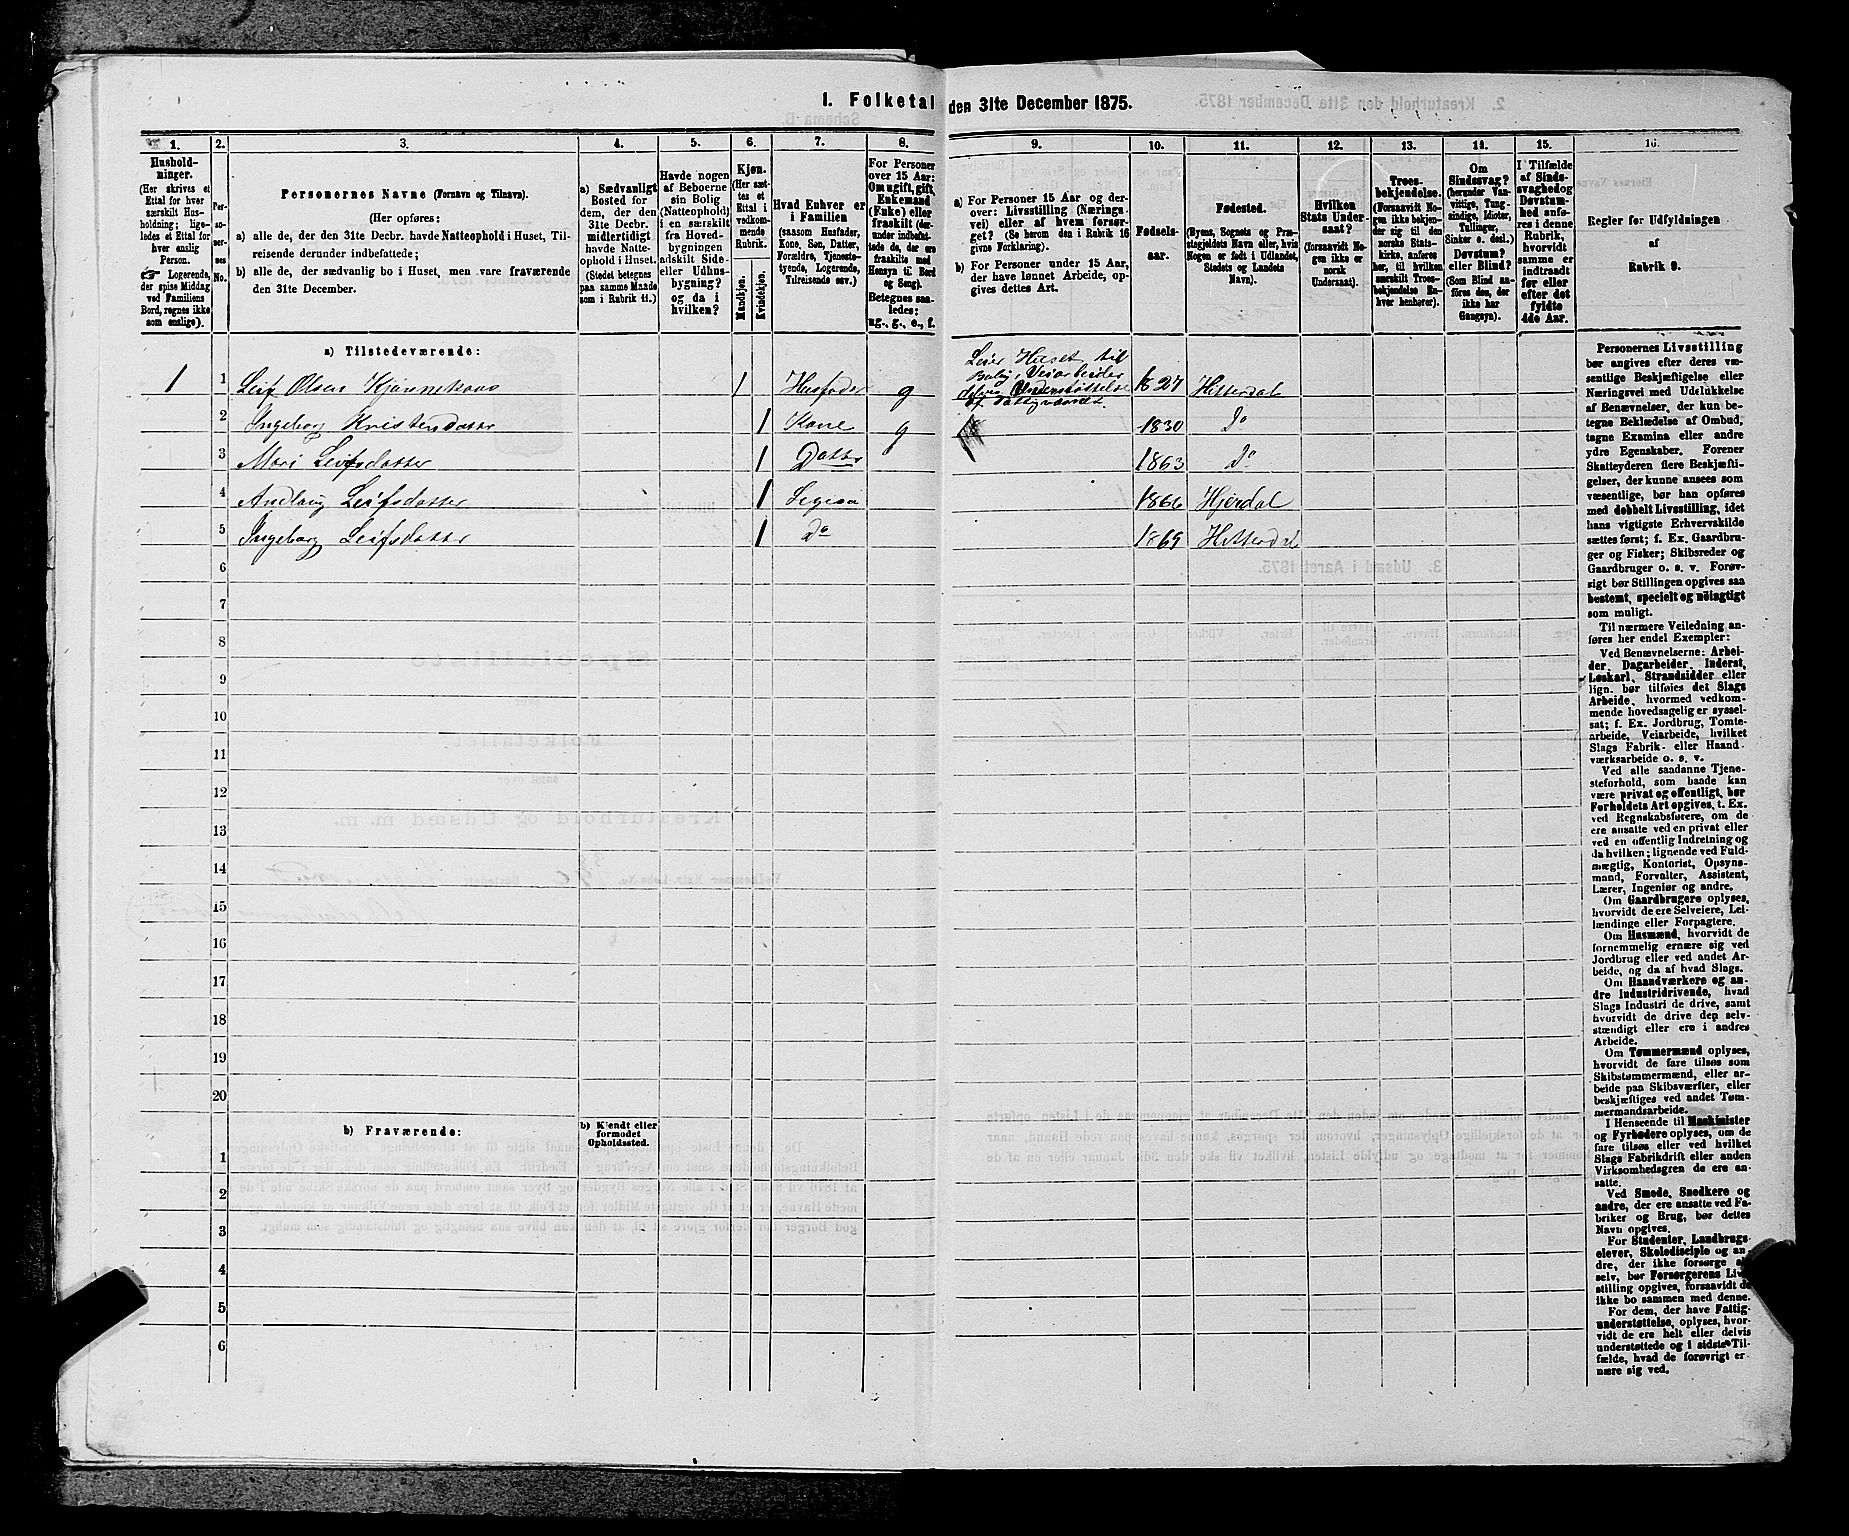 1. Folketal den 31te December 1875.
1.
Husholdninger.
(Her skrives et
Ettal for hver
særskilt Husholdning;
ligeledes et Ettal for
hver enslig
Person.
☞ Logerende,
der spise Middag
ved Familiens
Bord, regnes ikke
som enslige).
2.
Personernes
No.
3.
Personernes Navne (Fornavn og Tilnavn).
(Her opføres:
a) alle de, der den 31te Decbr. havde Natteophold i Huset, Tilreisende derunder indbefattede;
b) alle de, der sædvanlig bo i Huset, men vare fraværende
den 31te December.
4.
a) Sædvanligt
Bosted for
dem, der den
31te Decbr.
midlertidigt
havde Natteophold i Huset.
(Stedet betegnes
paa samme Maade
som i Rubrik 11.)
5.
Havde nogen
af Beboerne
sin Bolig
(Natteophold)
i en særskilt
fra Hovedbygningen
adskilt Side-
eller Udhusbygning?
og da i
hvilken?
6.
Kjøn.
(Her sættes et
Ettal i
vedkommende
Rubrik.
Mandkjøn.
Kvindekjøn.
7.
Hvad Enhver er
i Familien
(saasom Husfader,
Kone, Søn, Datter,
Forældre, Tjenestetyende, Logerende,
Tilreisende osv.)
8.
For Personer
over 15 Aar:
Om ugift, gift,
Enkemand
(Enke) eller
fraskilt (derunder indbefattede de, der ere
fraskilte med
Hensyn til Bord
og Seng).
Betegnes saaledes:
ug., g., e., f.
9.
a) For Personer 15 Aar og derover: Livsstilling (Næringsvei) eller af hvem forsørget? (Se herom den i Rubrik 16
givne Forklaring).
b) For Personer under 15 Aar,
der have lønnet Arbeide, opgives dettes Art.
10.
Fødselsaar.
11.
Fødested.
(Byens, Sognets og Præstegjeldets Navn eller, hvis
Nogen er født i Udlandet,
Stedets og Landets
Navn).
12.
Hvilken
Stats Undersaat?
(forsaavidt Nogen ikke er
norsk
Undersaat).
13.
Troesbekjendelse.
(Forsaavidt Nogen ikke bekjender sig til den
norske Statskirke, anføres
her, til hvilken
særskilt Troesbekjendelse Enhver henhører).
14.
Om
Sindssvag?
(herunder Vanvittige, Tungsindige, Idioter,
Tullinger,
Sinker o. desl.)
Døvstum?
eller Blind?
(Som Blind anføres den, der
ikke har
Gangsyn).
15.
I Tilfælde
af Sindssvaghed og
Døvstumhed anføres i denne
Rubrik,
hvorvidt
samme er
indtraadt
før eller
efter det
fyldte
4de Aar.
16.
Regler for Udfyldningen
af
Rubrik 9.
a) Tilstedeværende:
1 1 Leif Olsen 1 Husfader g Leier Huset til Bolig, Veiarbeider Understøttelse af Fattigvæsnet. 1827 Hitterdal
2 Ingeborg Kristendatter 1 Kone g 1830 Do
3 Mari Leifsdatter 1 Datter 1863 Do
4 Leifsdatter 1 1866 Hjerdal
5 Ingeborg Leifsdatter 1 Do 1869 Hitterdal
6
7
8
9
10
11
12
13
14
15
16
17
18
19
20
b) Fraværende:
b) Kjendt eller
formodet
Opholdssted.
1
2
3
4
5
6
Personernes Livsstilling
bør angives efter deres væsentlige Beskjæftigelse eller
Næringsvei med Udelukkelse
af Benævnelser, der kun betegne Beklædelse af Ombud,
tagne Examina eller andre
ydre Egenskaber. Forener
Skatteyderen flere Beskjæftigelser, der kunne ansees som
væsentlige, bør han opføres
med dobbelt Livsstilling, idet
hans vigtigste Erhvervskilde
sættes først; f. Ex. Gaardbruger og Fisker; Skibsreder og
Gaardbruger o. s. v. Forøvrigt bør Stillingen opgives saa
bestemt, specielt og nöiagtigt
som muligt.
Til nærmere Veiledning anføres her endel Exempler:
Ved Benævnelserne: Arbeider, Dagarbeider, Inderst,
Løskarl, Strandsidder eller
lign. bør tilføies det Slags
Arbeide, hvormed vedkommende hovedsagelig er sysselsat; f. Ex. Jordbrug, Tomtearbeide, Veiarbeide, hvilket
Slags Fabrik- eller Haandværksarbeide o. s. v.
Ved alle saadanne Tjenesteforhold, som baade kan
være privat og offentligt, bør
Forholdets Art opgives, t. Ex.
ved Regnskabsførere, om de
ere ansatte ved en privat eller
ved en offentlig Indretning og
da hvilken; lignende ved Fuldmægtig, Kontorist, Opsynsmand, Forvalter, Assistent,
Lærer, Ingeniør og andre.
Om Gaardbrugere oplyses,
hvorvidt de ere Selveiere, Leilændinge eller Forpagtere.
Om Husmænd, hvorvidt de
fornemmelig ernære sig ved
Jordbrug eller ved andet Arbeide, og da af hvad Slags.
Om Haandværkere og andre Industridrivende, hvad
Slags Industri de drive, samt
hvorvidt de drive den selvstændigt eller ere i andres
Arbeide.
Om Tømmermænd oplyses,
hvorvidt de fare tilsøs som
Skibstømmermænd, eller arbeide paa Skibsværfter, eller
beskjæftiges ved andet Tømmermandsarbeide.
I Henseende til Maskinister
og Fyrbødere oplyses, om de
fare tilsøs eller ved hvilket
Slags Fabrikdrift eller anden
Virksomhedsgren de ere ansatte.
Ved Smede, Snedkere og
andre, der ere ansatte ved Fabriker og Brug, bør dettes
Navn opgives.
For Studenter, Landbrugselever, Skoledisciple og andre, der ikke forsørge
selv, bør Forsørgerens Livsstilling opgives, forsaavidt de
ikke bo sammen med denne.
For dem, der have Fattigunderstøttelse, oplyses, hvorvidt de ere helt eller delvis
understøttede og i sidste Tilfælde, hvad de forøvrigt ernære sig ved.